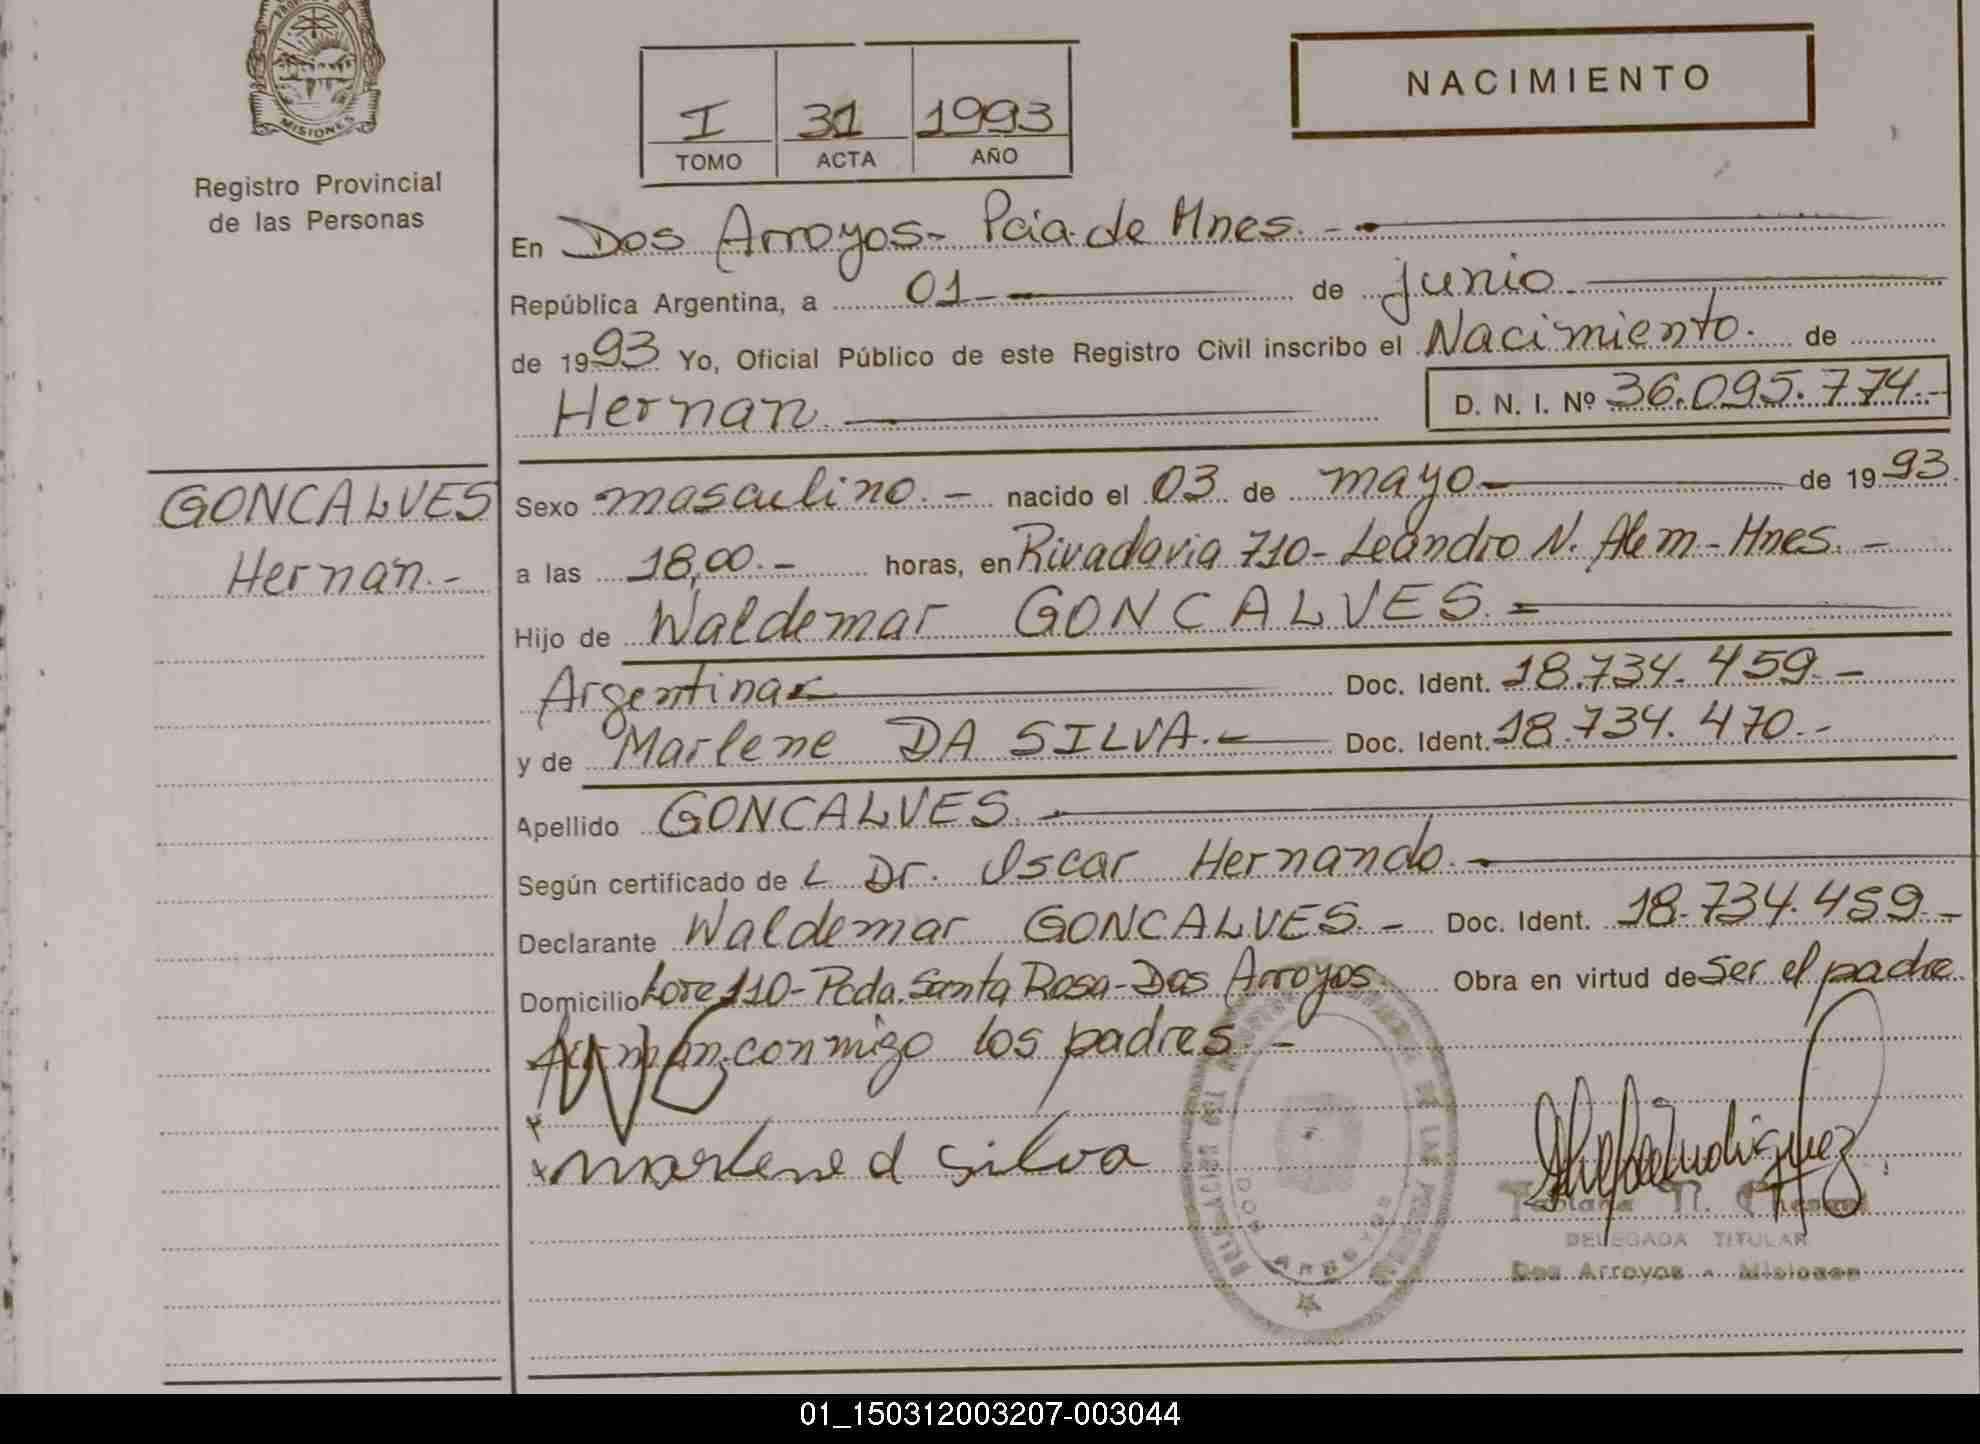 MISIONES
Registro Provincial
de las Personas
I 31 1993
TOMO ACTA AÑO
NACIMIENTO
En Dos Arroyos- Pcia. de Mnes. -
República Argentina, a 01 - de junio
de 1993 Yo, Oficial Público de este Registro Civil inscribo el Nacimiento. de
Hernan. D. N. I. Nº 36.095.774.-
GONCALVES
Hernan.-
Sexo masculino. - nacido el 03 de mayo de 1993
a las 18,00.- horas, en Rivadavia 710- Leandro N. Alem - Mnes. -
Hijo de Waldemar GONCALVES. =
Argentina Doc. Ident. 18.734.459.-
y de Marlene DA SILVA. - Doc. Ident. 18.734.470.-
Apellido GONCALVES.
Según certificado de L Dr. Oscar Hernando.
Declarante Waldemar GONCALVES. - Doc. Ident. 18.734.459.-
Domicilio Lote 110- Pcda. Santa Rosa- Dos Arroyos Obra en virtud de ser el padre
firman conmigo los padres. -
marlene d silva
DOS ARROYOS
DELEGADA TITULAR
Dos Arroyos - Misiones
01_150312003207-003044